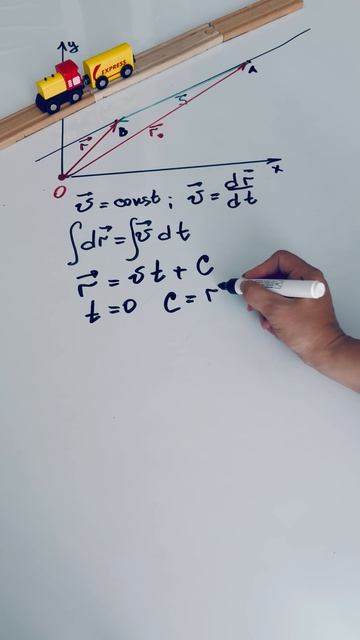 EXPRESS
y
A
S⃗
B
r⃗ r⃗₀
O x
v⃗ = const; v⃗ = dr⃗/dt
∫dr⃗ = ∫v⃗ dt
r⃗ = vt + C
t = 0 C = r